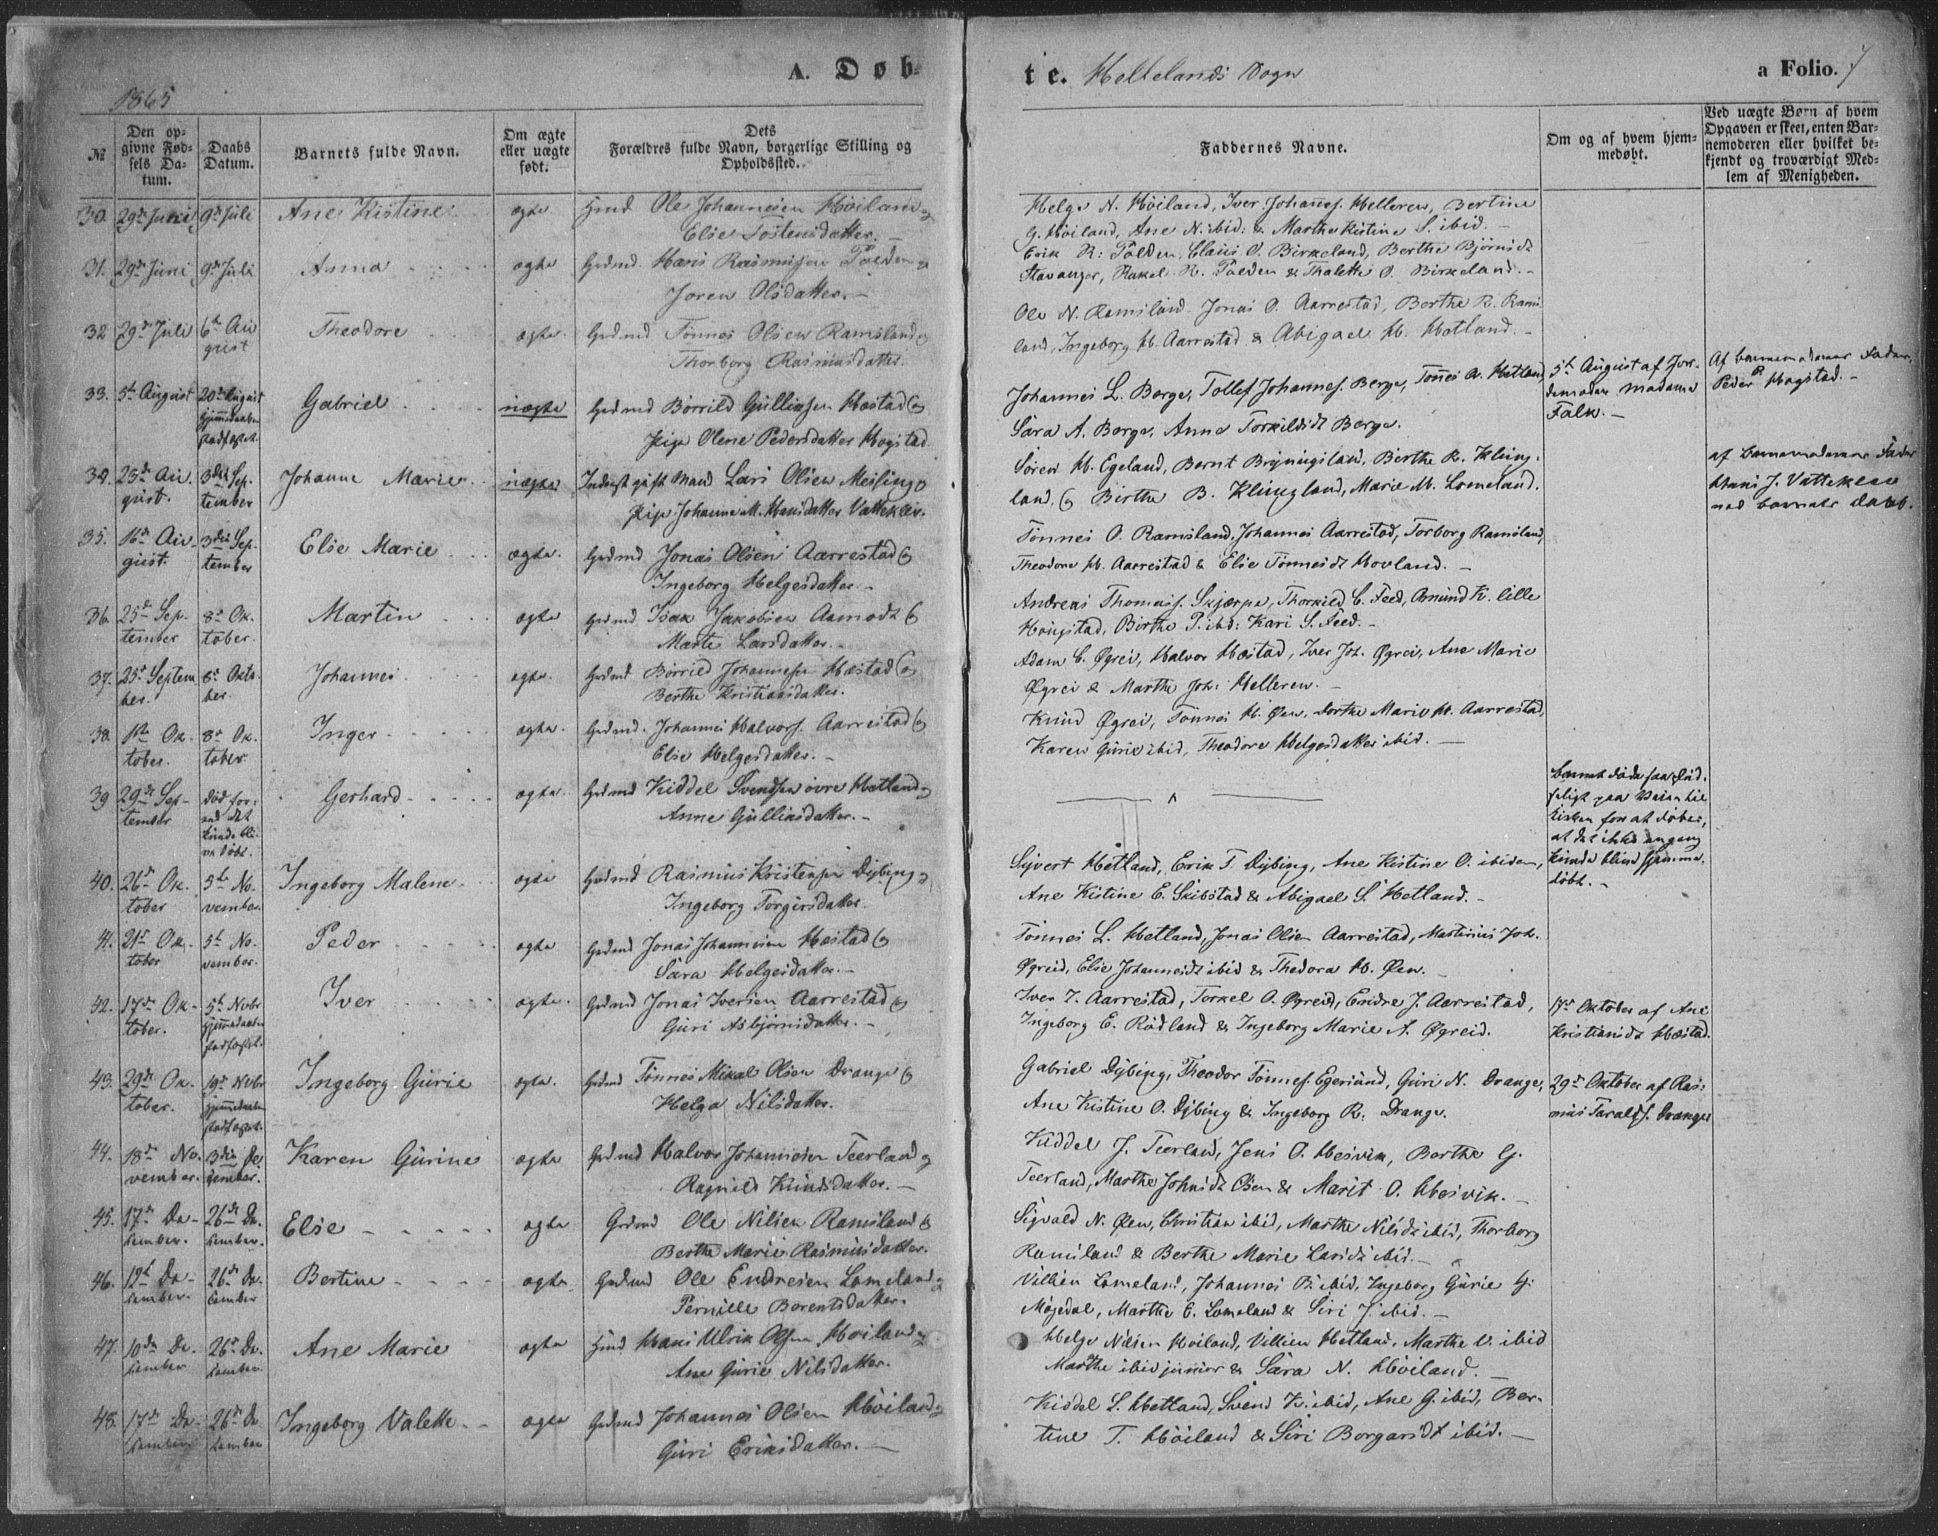 A. Døb-
te. Hellelands Sogn
a Folio. 7
1865
№
Den opgivne Fødsels Datum.
Daabs Datum.
Barnets fulde Navn.
Om ægte eller uægte født.
Dets Forældres fulde Navn, borgerlige Stilling og Opholdssted.
Faddernes Navne.
Om og af hvem hjemmedøbt.
Ved uægte Børn af hvem Opgaven er skeet, enten Barnemoderen eller hvilket bekjendt og troværdigt Medlem af Menigheden.
30. 29de Juni 9de Juli Ane Kistine ægte Hmd Ole Johannesen Høiland og
Else Tostensdatter.
Helge N. Høiland, Iver Johannes. Helleren, Bertine
G. Høiland, Ane N. ibid: & Marthe Kistine S. ibid.
31. 29de Juni 9de Juli Anna ægte Grdmd Hans Rasmusen Polden og
Joren Olsdatter.
Erik R: Polden, Claus O. Birkeland, Berthe Bjørnsdt
Stavanger, Rakel R. Polden & Thalette O. Birkeland.
32 29de Juli 6te August Theodore ægte Grdmd Tønnes Olsen Ramsland og
Thorborg Rasmusdatter
Ole N. Ramsland, Jonas O. Aarrestad, Berthe R. Rams
land, Ingeborg H. Aarrestad & Abigael H. Hetland.
33. 5te August 20de August hjemmedaaben stadfæstet. Gabriel uægte Grdmd Børrild Gulliksen Hæstad og
Pige Olene Pedersdatter Hogstad
Johannes L. Berge, Tollef Johannes. Berge, Tønnes A. Hetland
Sara A. Berge, Anne Torkildsdt Berge.
5te August af Jordemoder Madame Falk.
Af barnemoderens Fader, Peder P Hogstad.
34. 25de August. 3die September Johanne Marie uægte Inderst gift Mand Lars Olsen Meising og
Pige Johanne M. Hansdatter Vatteklev.
Søren H. Egeland, Bernt Bryningsland, Berthe R. Kling-
land, og Birthe B. Klingland, Marie M. Lomeland.
af barnemoderens Fader Hans J. Vatteklev ved barnets daab.
35. 16de August. 3die September Else Marie ægte Grdmd Jonas Olsen Aarrestad og
Ingeborg Helgesdatter
Tønnes O. Ramsland, Johannes Aarrestad, Torborg Ramsland,
Theodore H. Aarrestad & Else Tønnesdt Hovland.
36. 25de September 8de Oktober. Martin ægte Grdmd Isak Jakobsen Aamodt og
Marte Larsdatter.
Andreas Thomas. Skjærpe, Thorkild C. Feed, Amund K. lille
Hougstad, Birthe P. ibd: Kari S. Feed.
37. 25de September. 8de Oktober. Johannes ægte Grdmd Børrild Johannesen Hæstad og
Berthe Kristiansdatter.
Adam C. Øgrei, Halvor Hæstad, Iver Joh. Øgrei, Ane Marie
Øgrei & Marthe Joh: Helleren.
38. 1ste Oktober. 8de Oktober. Inger ægte Grdmd. Johannes Halvors. Aarrestad og
Else Helgesdatter.
Knud Øgrei, Tønnes H. Øen, Dorthe Marie H. Aarrestad,
Karen Gurie ibid, Theodore Helgesdatter ibid.
39 29de September død forend det kunde blive døbt. Gerhard ægte Grdmd Kiddel Svendsen øvre Hetland og
Anne Gulliksdatter.
barnet døde saa pludseligt paa Veien til Kirken for at døbes, at det ikke engang kunde blive hjemmedøbt.
40. 26de Oktober 5te November. Ingeborg Malene ægte Grdmd Rasmus Kristensen Dybing og
Ingeborg Torgersdatter.
Sijvert Hetland, Erik T. Dybing, Ane Kistine O. ibidem,
Ane Kistine E. Skibstad & Abigael S. Hetland.
41. 21de Oktober 5te November. Peder ægte Grdmd Jonas Johannesen Hæstad og
Sara Helgesdatter.
Tønnes L. Hetland, Jonas Olsen Aarrestad, Martinius Joh.
Øgreid, Else Johannesdt ibid & Thedora H. Øen.
42. 17de Oktober. 5te Novbr hjemmedaaben stadfæstet. Iver ægte Grdmd Jonas Iversen Aarrestad og
Guri Asbjørnsdatter.
Iver J. Aarrestad, Torkel O. Øgreid, Endre J. Aarrestad,
Ingeborg E. Rødland & Ingeborg Marie A. Øgreid.
17de Oktober af Ane Kristiansdt Hæstad.
43. 29de Oktober. 19de Novbr hjemmedaaben stadfæstet. Ingeborg Gurie ægte Grdmd Tønnes Mikal Olsen Drange og
Helga Nilsdatter.
Gabriel Dybing, Theodor Tønnes. Egersund, Guri N. Drange,
Ane Kistine O. Dybing & Ingeborg R. Drange.
29de Oktober af Rasmus Taralds. Drange
44. 18de November. 3die December. Karen Gurine ægte Grdmd Halvor Johannesen Teerland og
Ragnild Knudsdatter.
Kiddel J. Teerland, Jens O. Hesvik, Berthe G.
Teerland, Marthe Johnsdt Øen & Marit O. Hesvik.
45. 17de December. 26de December. Else ægte Grdmd Ole Nilsen Ramsland og
Berthe Marie Rasmusdatter.
Sigvald N. Øen, Christian ibid, Marthe Nilsdt ibid, Thorborg
Ramsland & Berthe Marie Larsdt ibid.
46. 12te December. 26de December Bertine ægte Grdmd Ole Endresen Lomeland og
Pernille Berentsdatter.
Villien Lomeland, Johannes P. ibid, Ingeborg Gurie G.
Møgedal, Marthe E. Lomeland & Siri J. ibid.
47. 10de December 26de December. Ane Marie ægte Hmd Hans Ulrik Olsen Høiland og
Ane Gurie Nilsdatter.
Helge Nilsen Høiland, Villien Hetland, Marthe V. ibid
Marthe ibid junior & Sara N. Høiland.
48. 17de December 26de December Ingeborg Valette ægte Grdmd Johannes Olsen Høiland og
Guri Eriksdatter.
Kiddel S. Hetland, Svend K. ibid, Ane G. ibid, Ber-
tine T. Høiland & Siri Borgarsdt ibid.